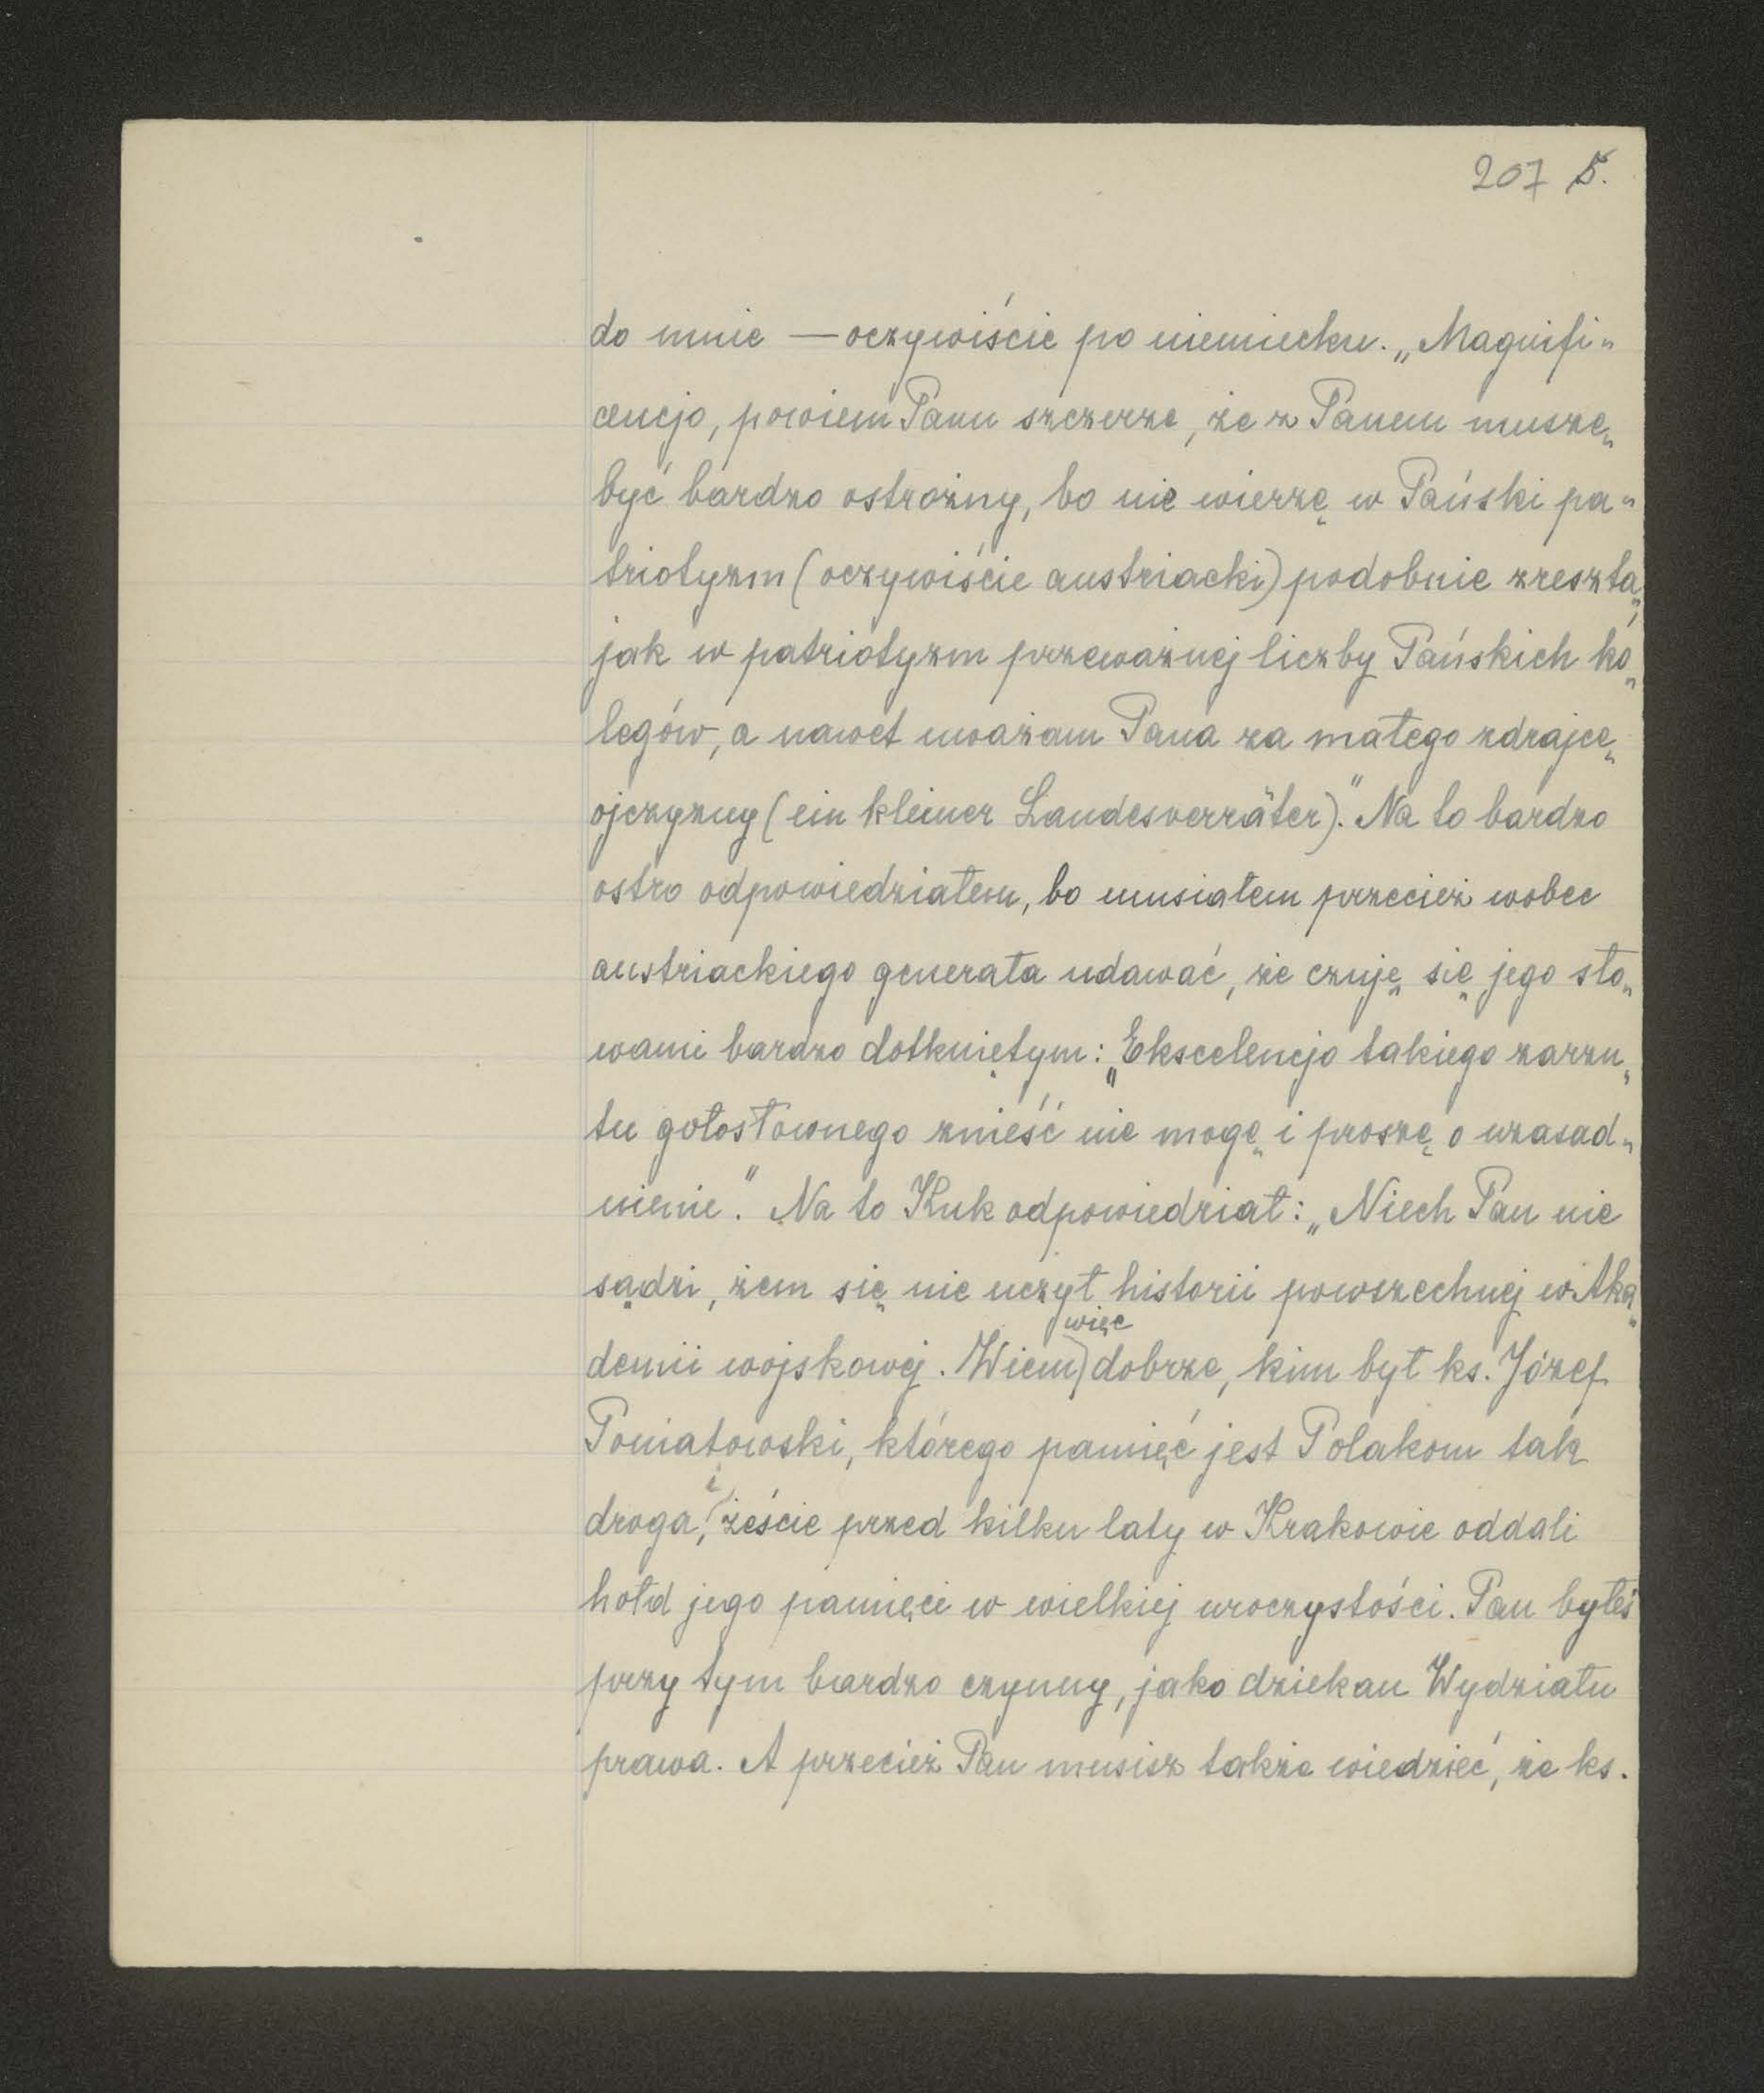 207 5.
do mnie — oczywiście po niemiecku. „Magnifi„
cencjo, powiem Panu szczerze, że z Panem muszę
być bardzo ostrożny, bo nie wierzę w Pański pa„
triotyzm (oczywiście austriacki) podobnie zresztą,
jak w patriotyzm przeważnej liczby Pańskich ko„
legów, a nawet uważam Pana za małego zdrajcę
ojczyzny (ein kleiner Landesverräter)." Na to bardzo
ostro odpowiedziałem, bo musiałem przecież wobec
austriackiego generała udawać, że czuję się jego sło„
wami bardzo dotkniętym: „Ekscelencjo takiego zarzu„
tu gołosłownego znieść nie mogę i proszę o uzasad„
nienie." Na to Kuk odpowiedział: „Niech Pan nie
sądzi, żem się nie uczył historii powszechnej w Aka„
demii wojskowej. Wiem więc dobrze, kim był ks. Józef
Poniatowski, którego pamięć jest Polakom tak
droga, i żeście przed kilku laty w Krakowie oddali
hołd jego pamięci w wielkiej uroczystości. Pan byłeś
przy tym bardzo czynny, jako dziekan Wydziału
prawa. A przecież Pan musisz także wiedzieć, że ks.